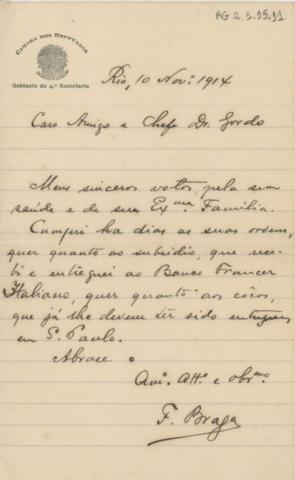 AG 2.3.15.11
CAMARA DOS DEPUTADOS
Gabinete do 4.º Secretario
Rio, 10 Nov.º 1914
Caro Amigo e Chefe Dr. Gordo
Meus sinceros votos pela sua
saúde e de sua Ex.ma Familia.
Cumpri ha dias as suas ordens,
quer quanto ao subsidio, que rece-
bi e entreguei ao Banco Francez
Italiano, quer quanto aos
que já lhe devem ter sido entregues
em S. Paulo.
Abrace o
Am.º Att.º e obr.mo
F. Braga